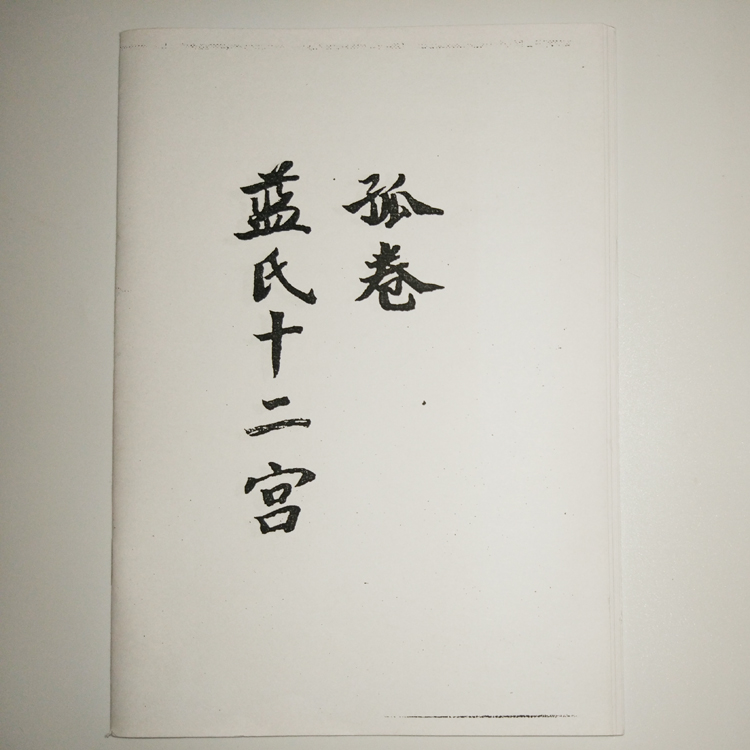 孤卷
蓝氏十二宫